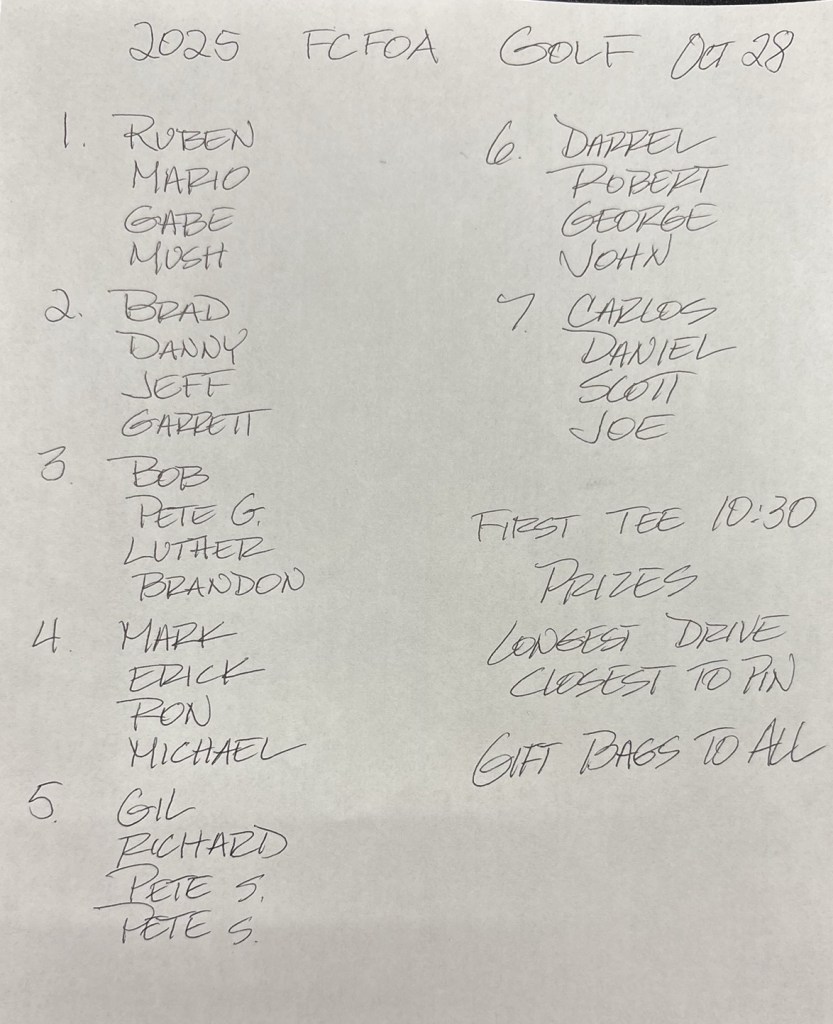 2025 FCFOA GOLF OCT 28
1. RUBEN
MARIO
GABE
MUSH
2. BRAD
DANNY
JEFF
GARRETT
3. BOB
PETE G.
LUTHER
BRANDON
4. MARK
ERICK
RON
MICHAEL
5. GIL
RICHARD
PETE S.
PETE S.
6. DARREL
ROBERT
GEORGE
JOHN
7. CARLOS
DANIEL
SCOTT
JOE
FIRST TEE 10:30
PRIZES
LONGEST DRIVE
CLOSEST TO PIN
GIFT BAGS TO ALL